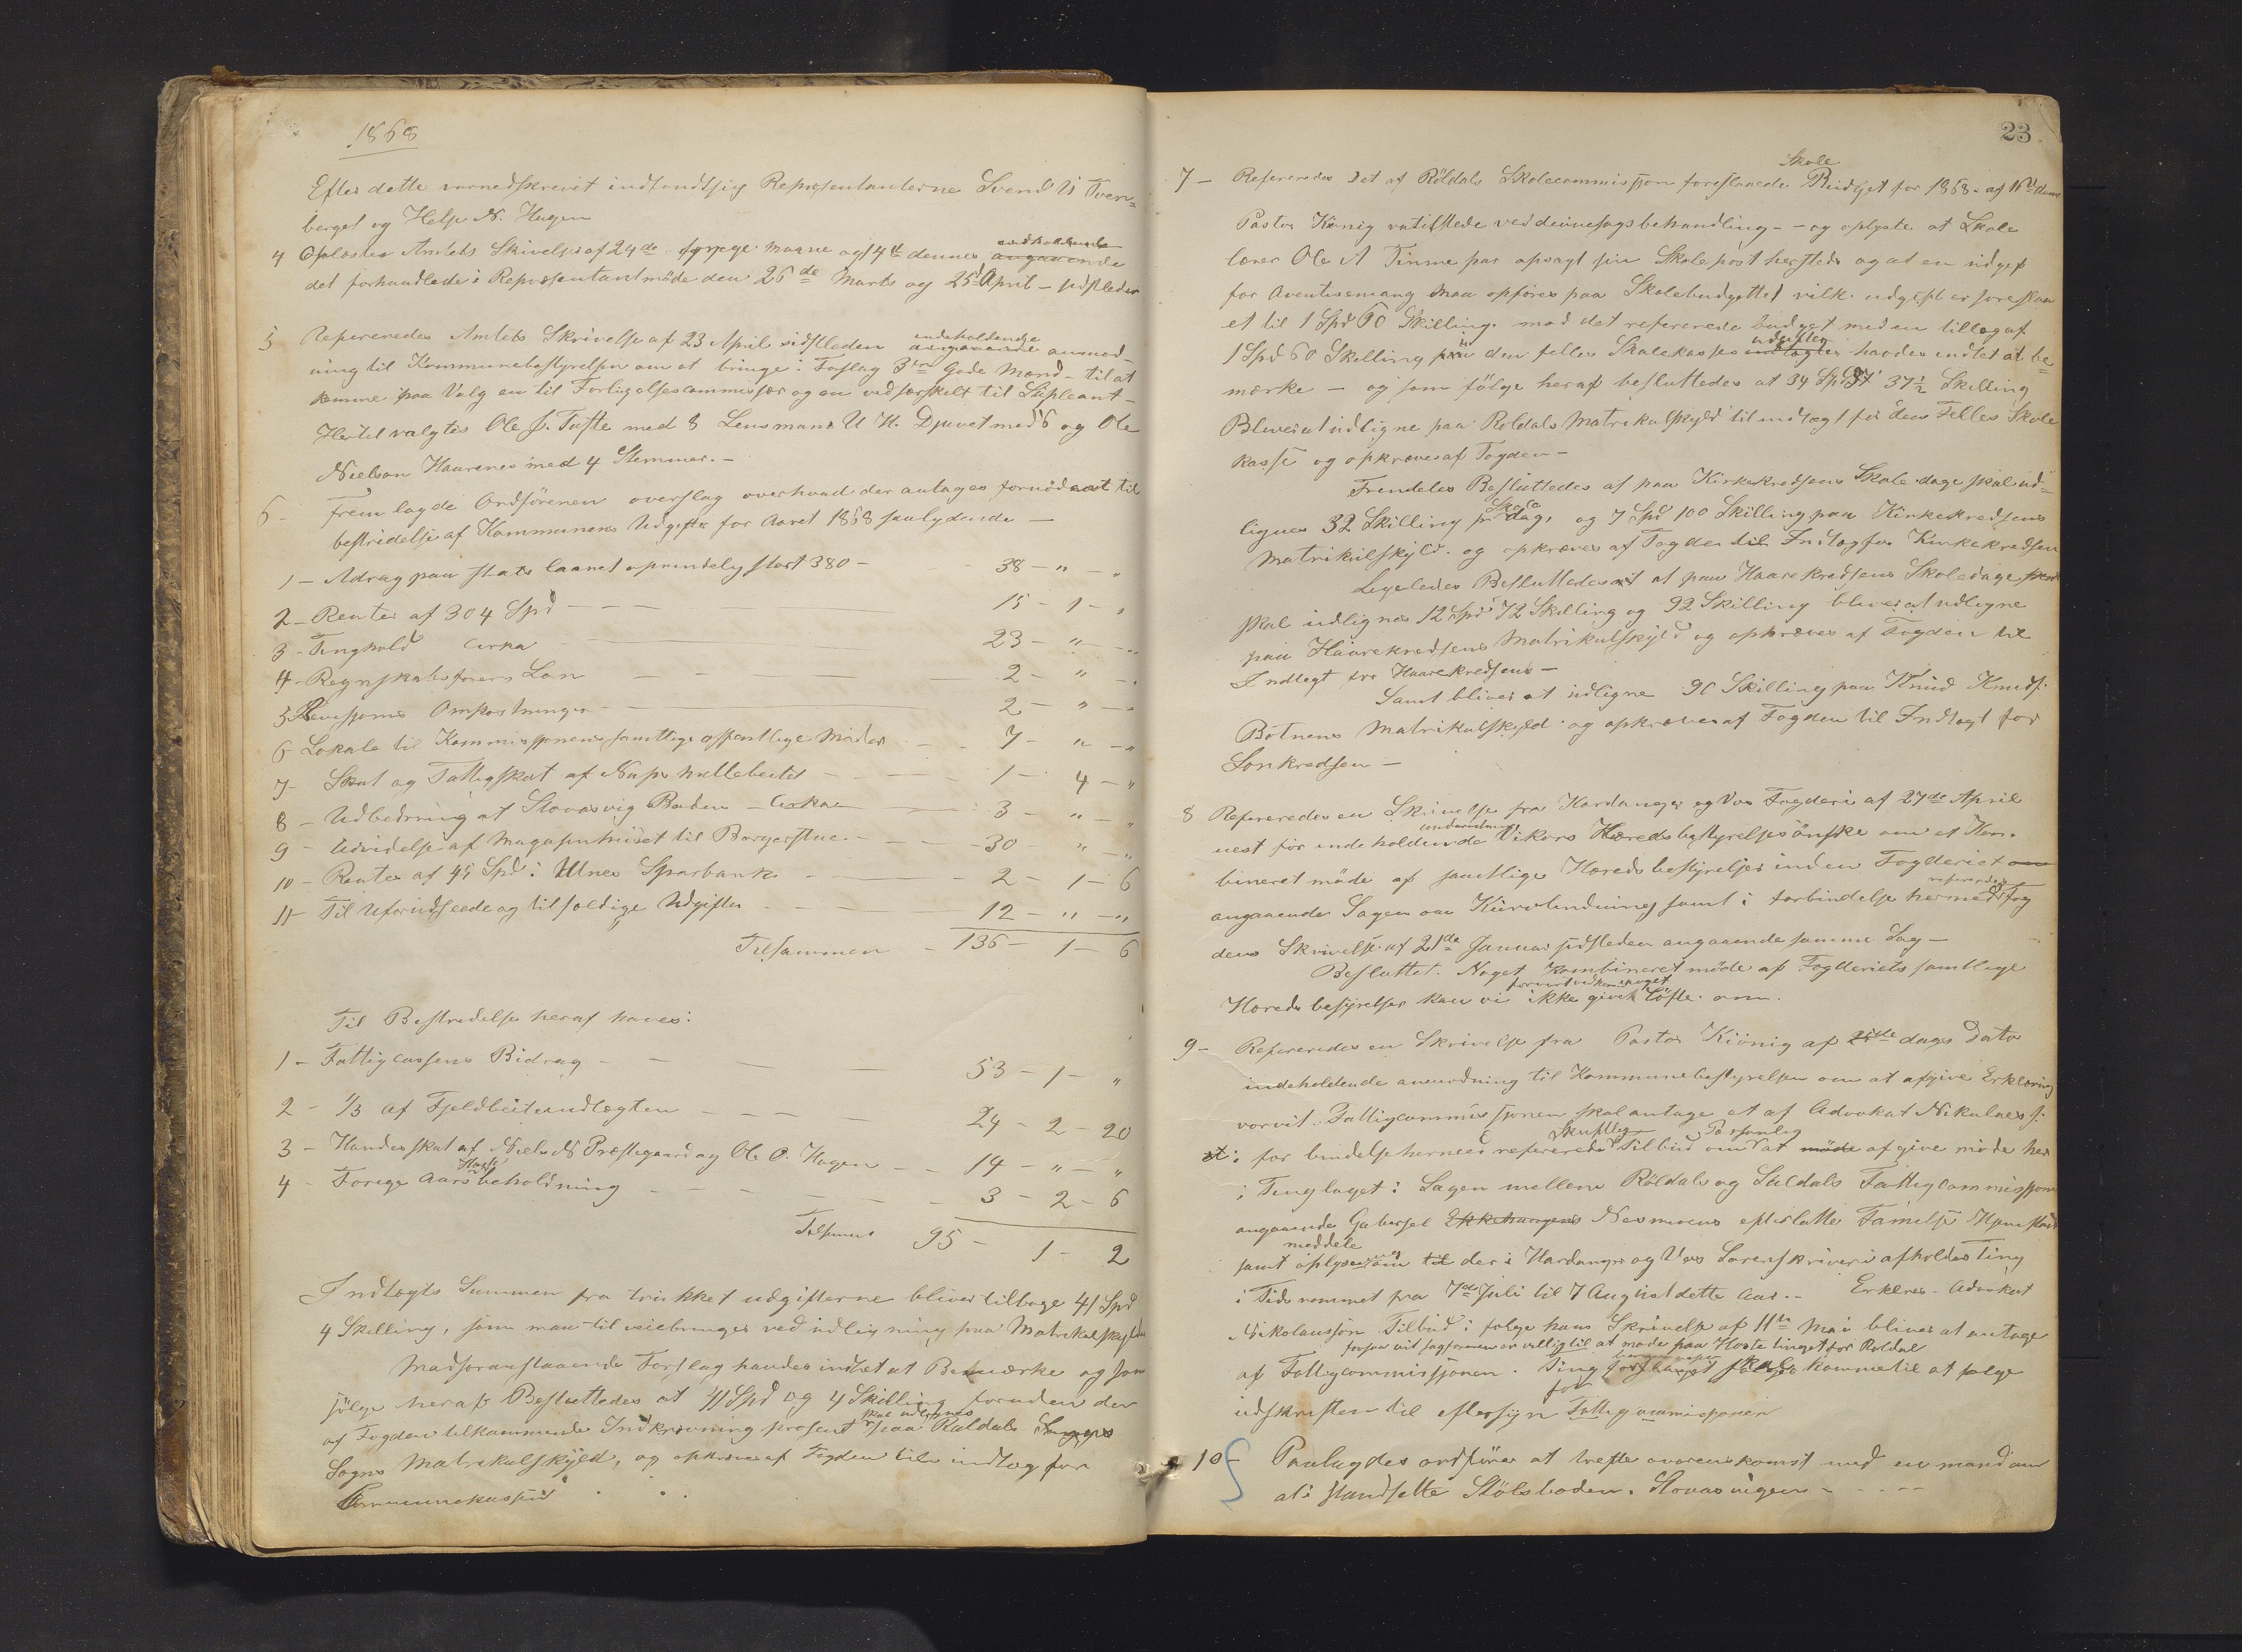 1868
Efter dette var nedskrevet indfandt sig Repræsentanterne Svend
berget og Helje N. Hagen
4 Oplæstes Amtets Skrivelse af 24de forrige maane og 14de dennes angaaende indholdende
det forhandlede i Repræsentantmøde den 26de Marts og 25de April sidstleden
5 Refereredes Amtets Skrivelse af 23 April sidstleden angaaende indeholdende anmod-
ning til Kommunebestyrelsen om at bringe i Forslag 3de Gode Mænd - til at
komme paa Valg en til Forligelsescommissær og en ved særskilt til
Hertil valgtes Ole J. Tufte med 8 Lensmand U H. Djuvet med 6 og Ole
Nielson Haarenes med 4 Stemmer. -
6 - Fremlagde Ordføreren overslag over hvad der antages fornødent til
bestridelse af Kommunens Udgifter for Aaret 1868 saalydende -
1 - Adrag paa stats laanet oprindelig stort 380 - 38 - " - "
2 - Renter af 304 Spd - - - 15 - 1 - "
3 - Tinghold cirka 23 - " - "
4 - Regnskabsførers Løn - - - 2 - " - "
5 Revisjons Omkostninger - 2 - " - "
6 Lokale til Kommissjonens samtlige offentlige Møder - 7 - " - "
7 - Skat og Fattigskat af - 1 - 4 - "
8 - Udbedrning af Slovasvig Boden - Cirka 3 - " - "
9 - Udvidelse af Magasinhuset til Borgerstue - 30 - " - "
10 - Renter af 45 Spd i Utnes Sparbank - 2 - 1 - 6
11 - Til Uforudseede og tilfældige Udgifter - 12 - " - "
Tilsammen - 136 - 1 - 6
Til Bestridelse heraf haves:
1 - Fattigcassens Bidrag - - 53 - 1 - "
2 - 1/3 af Fjeldbeiteindtægten - - - 24 - 2 - 20
3 - Handesskat af Niels N Præstegaard og Ole O. Hagen - - 14 - " - "
4 - Forrige Aars Kasse beholdning - - - 3 - 2 - 6
Tilsammen 95 - 1 - 2
Indtægts Summen fra trukket udgifterne bliver tilbage 41 Spd
4 Skilling, som maa tilveiebringes ved udligning paa Matrikelskylden
Mod foranstaaende Forslag havdes indtet at Bemærke og som
følge heraf Besluttedes at 41 Spd og 4 Skilling foruden den
af Fogden tilkommende Indkrævning prosent skal udlignes paa Røldals
Sogns Matrikulskyld, og opkræves af Fogden til indtæg for
Kommunekassen
23
7 - Refereredes det af Röldals Skolecommissjon foreslaaede Skole Budget for 1868 af 11te dennes
Pastor König var tilstede ved denne sags behandling - - og oplyste at Skole
lærer Ole A Tinne har opsagt sin Skolepost hersteds og at en udgift
for Avertisemang maa opføres paa Skolebudgettet vilk. udgift er foreslaa
et til 1 Spd 60 Skilling. mod det refererede budget med en tillæg af
1 Spd 60 Skilling den felles Skolekasses indtægter udgifter havdes indtet at be-
mærke - og som følge heraf besluttedes at 34 Spd 37 1/2 Skilling
Bliver at udligne paa Røldals Matrikulskyld til indtægt for den Felles Skole
kasse og opkræves af Fogden -
Fremdeles Besluttedes at paa Kirkekredsens Skole dage skal ud-
lignes 32 Skilling pr Skole dag, og 7 Spd 100 Skilling paa Kirkekredsens
Matrikulskyld. og opkræves af Fogden til Indtæg for Kirkekredsen
Ligeledes Besluttedes at paa Haarekredsens Skoledage
skal udlignes 12 Spd 72 Skilling og 92 Skilling bliver at udligne
paa Haarekredsens Matrikulskyld og opkræves af Fogden til
Indtægt for Haarekredsens -
Samt bliver at udligne 90 Skilling paa Knud Knuds.
Botnens Matrikulskyld og opkræves af Fogden til Indtægt for
Sønkredsen -
8 Refereredes en Skrivelse fra Hardanger og Vos Fogderi af 27de April
næst før indeholdende underretning Vikørs Hæredsbestyrelses ønske om et Kom-
bineret møde af samtlige Hæredsbestyrelser inden Fogderiet
angaaende Sagen om samt i forbindelse hermed refereredes Fog
dens Skrivelse af 21de Januar sidstleden angaaende samme Sag -
Besluttet. Noget Kombineret møde af Fogderiets samtlige
Hæredsbestyrelser kan vi ikke give noget løfte om.
9 - Refereredes en Skrivelse fra Pastor König af dags Dato
indeholdende anmodning til Kommunebestyrelsen om at afgive Erklæring
vorvit Fattigcommissjonen skal antage et af Advokat Nikulaess:
i forbindelse hermed refereredes Skriftlig Tilbud om at Personlig møde afgive møde her
i Tinglaget i Sagen mellem Röldals og Suldals Fattigcommissjon
angaaende Gabriel Nesmoens efterlatte Familje
samt oplysning meddele om der i Hardanger og Vos Sorenskriveri afholdes Ting
i Tidsrommet fra 7de Juli til 7 August dette Aar. - Erklæres. Advokat
Nikolaussøn Tilbud i følge hans Skrivelse af 11te Mai bliver at antage
forsaavit sagføreren er villig til at møde paa Høste tinget for Røldal
af Fattigcommissjonen. Ting komme til at følge
udskriften til eftersyn for Fattigcommissjonen
10 - Paalagdes ordfører at træffe overenskomst med en mand om
at i standsette Stölsboden i Slovasvigen - - - -